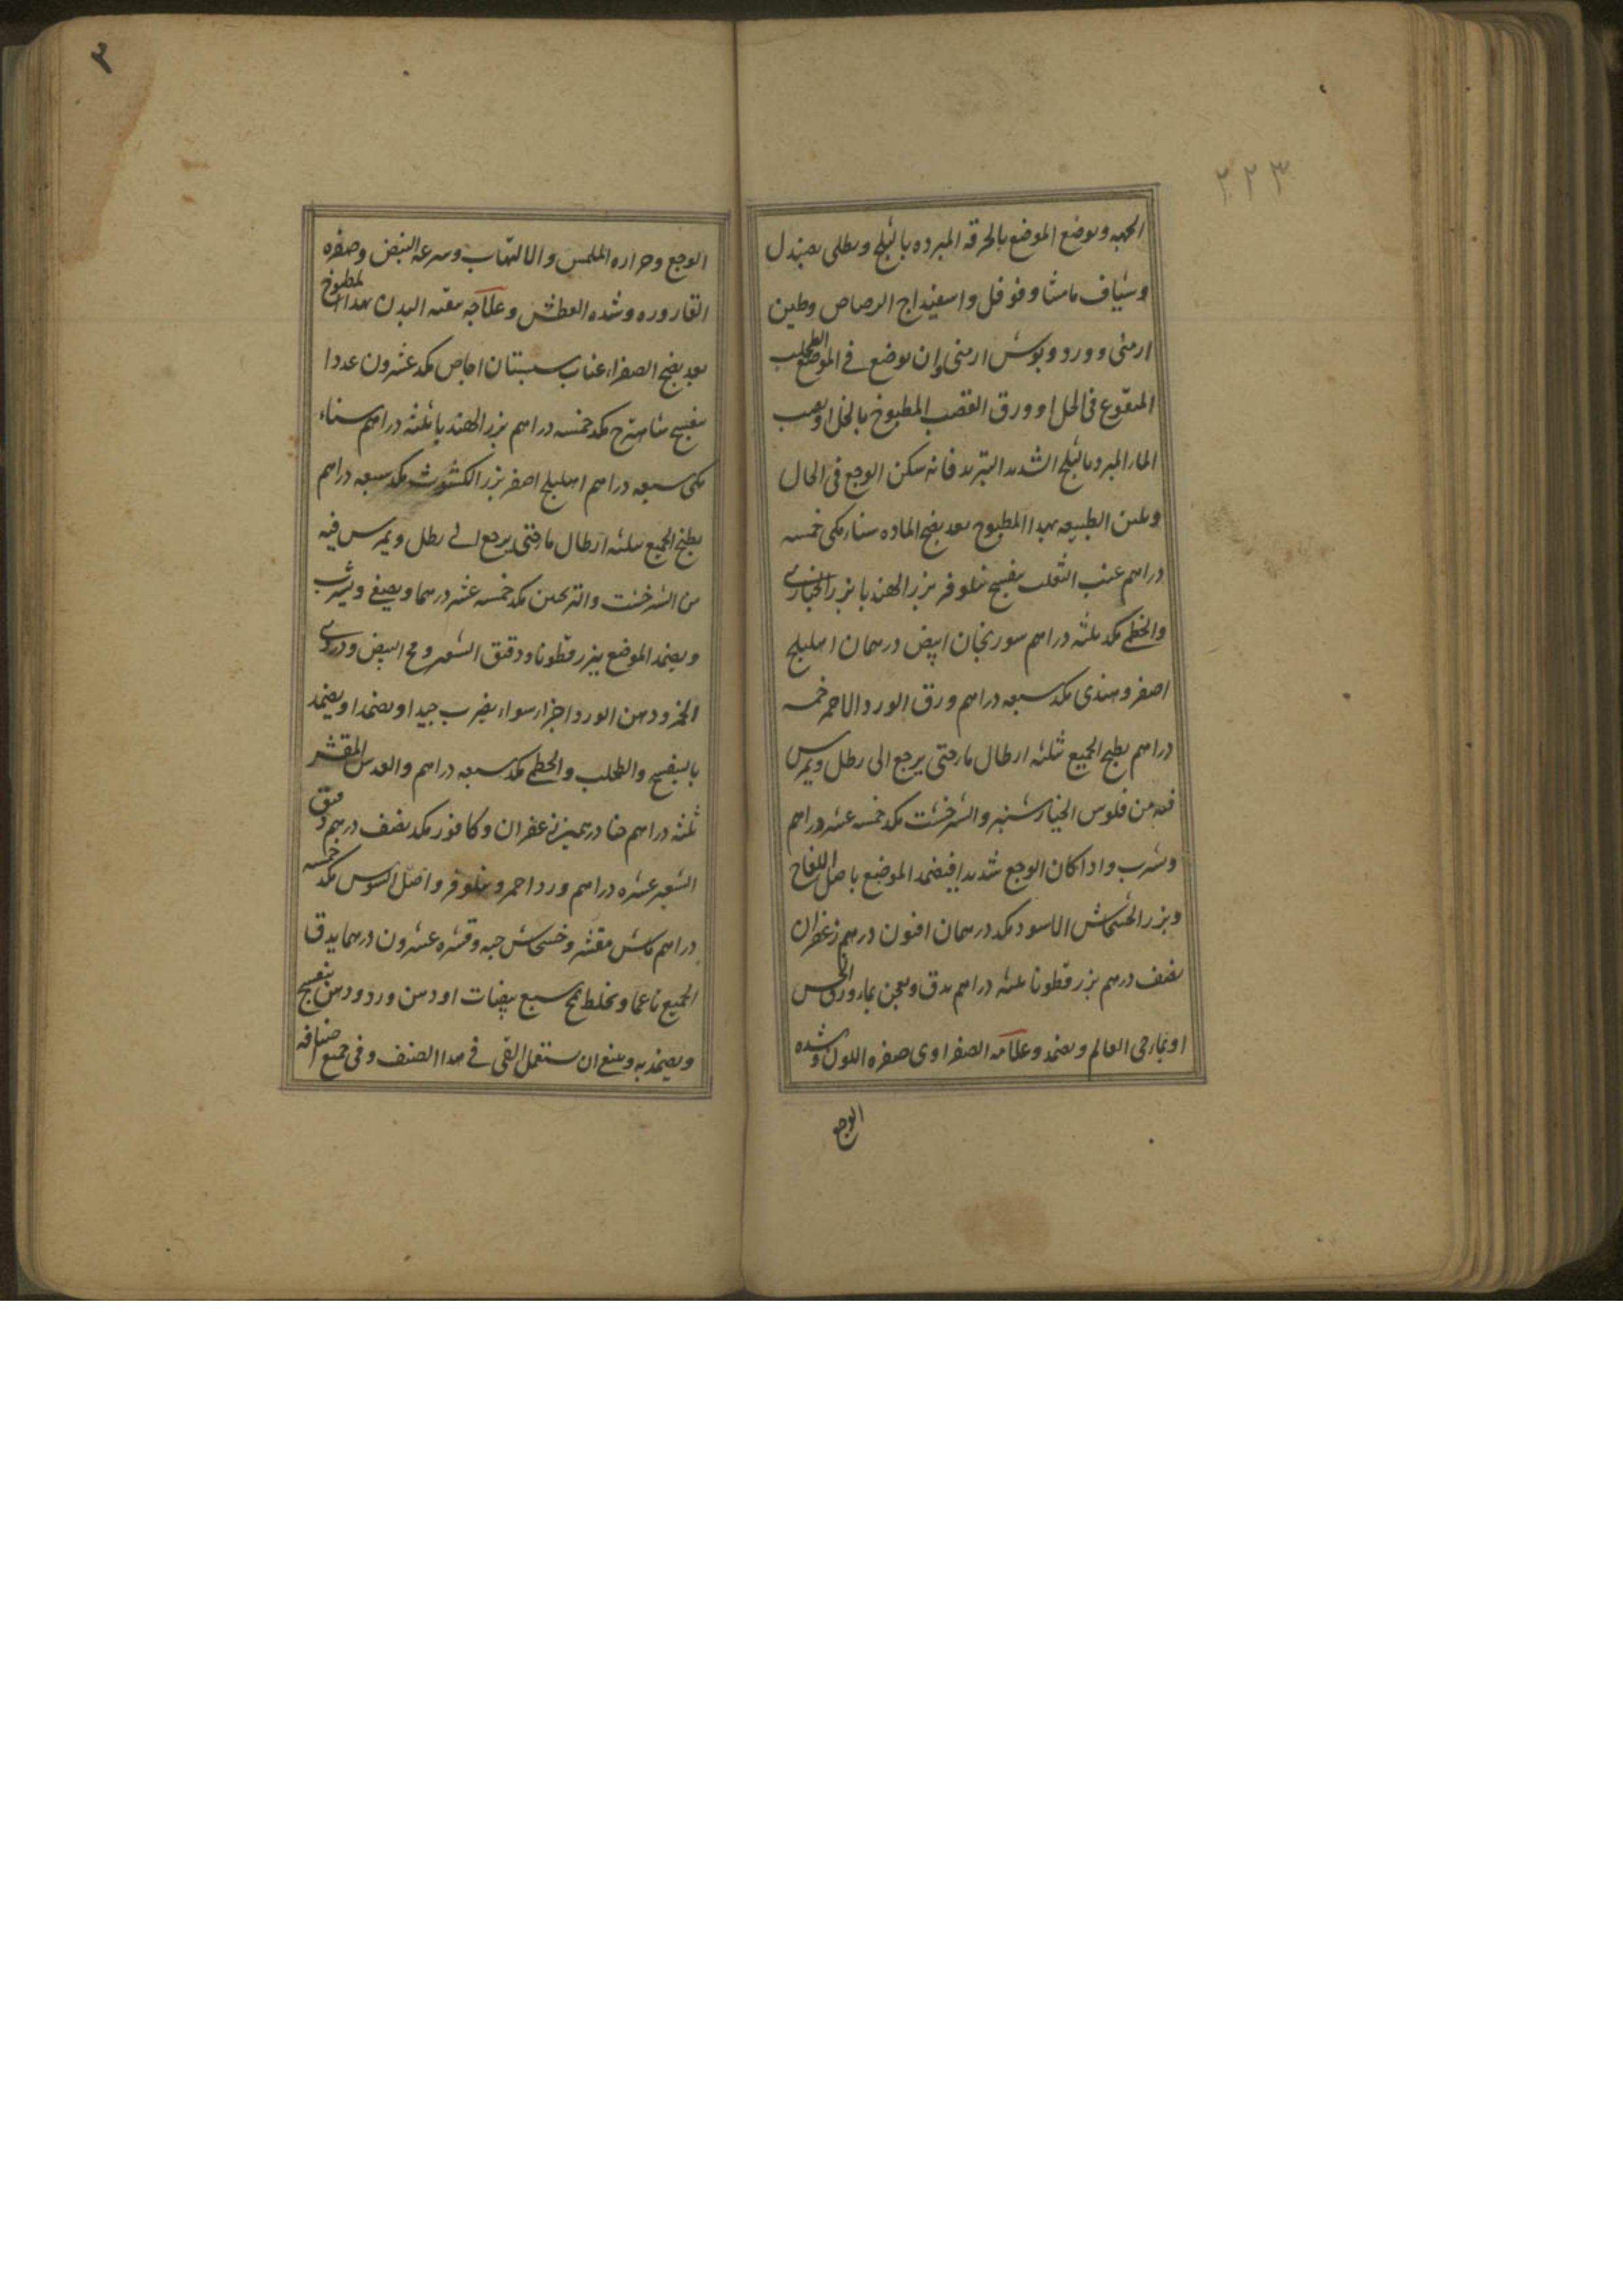 ٢٢٣
الجهه ویوضع الموضع بالخرقه المبرده بالثلج ویطلی بصندل
وشیاف مامیثا وفوفل واسفیداج الرصاص وطین
ارمنی وورد وبوش ارمنی وان یوضع فی الموضع الطحلب
المنقوع فی الخل او ورق القصب المطبوخ بالخل او یصب
الماء المبرد بالثلج الشدید التبرید فانه یسکن الوجع فی الحال
ویلین الطبیعه بهذا المطبوخ بعد نضج الماده سناء مکی خمسه
دراهم عنب الثعلب بنفسج نیلوفر بزر الهندبا بزر الخبازی
والخطمی مکد ثلثه دراهم سورنجان ابیض درهمان اهلیلج
اصفر وهندی مکد سبعه دراهم ورق الورد الاحمر خمسه
دراهم یطبخ الجمیع ثلثه ارطال ماء حتی یرجع الی رطل ویمرس
فیه من فلوس الخیارشنبر والشرخشت مکد خمسه عشر دراهم
ویشرب واذا کان الوجع شدیدا فیضمد الموضع باصل اللفاح
وبزر الخشخاش الاسود مکد درهمان افیون درهم زعفران
نصف درهم بزر قطونا ثلثه دراهم یدق ویعجن بماء ورق الخس
او بماء حی العالم ویضمد وعلامه الصفراوی صفره اللون وشده
الوجع
٣
الوجع وحراره الملمس والالتهاب وسرعه النبض وصفره
القاروره وشده العطش وعلاجه تنقیه البدن بهذا المطبوخ
بعد نضج الصفراء عناب سبستان اجاص مکد عشرون عددا
بنفسج شاهترج مکد خمسه دراهم بزر الهندبا ثلثه دراهم سناء
مکی سبعه دراهم اهلیلج اصفر بزر الکشوث مکد سبعه دراهم
یطبخ الجمیع بثلثه ارطال ماء حتی یرجع الی رطل ویمرس فیه
من الشرخشت والترنجبین مکد خمسه عشر درهما ویصفی ویشرب
ویضمد الموضع ببزر قطونا ودقیق الشعیر ومح البیض ودردی
الخمر ودهن الورد اجزاء سواء یضرب جیدا ویضمد او یضمد
بالبنفسج والطحلب والخطمی مکد سبعه دراهم والعدس المقشر
ثلثه دراهم حنا درهمین زعفران وکافور مکد نصف درهم دقیق
الشعیر عشره دراهم ورد احمر ونیلوفر واصل السوس مکد خمسه
دراهم ماش مقشر وخشخاش حبه وقشره عشرون درهما یدق
الجمیع ناعما ویخلط بمح سبع بیضات او دهن ورد ودهن بنفسج
ویضمد به ویمنع ان یستعمل القی فی هذا الصنف وفی جمیع اصنافه